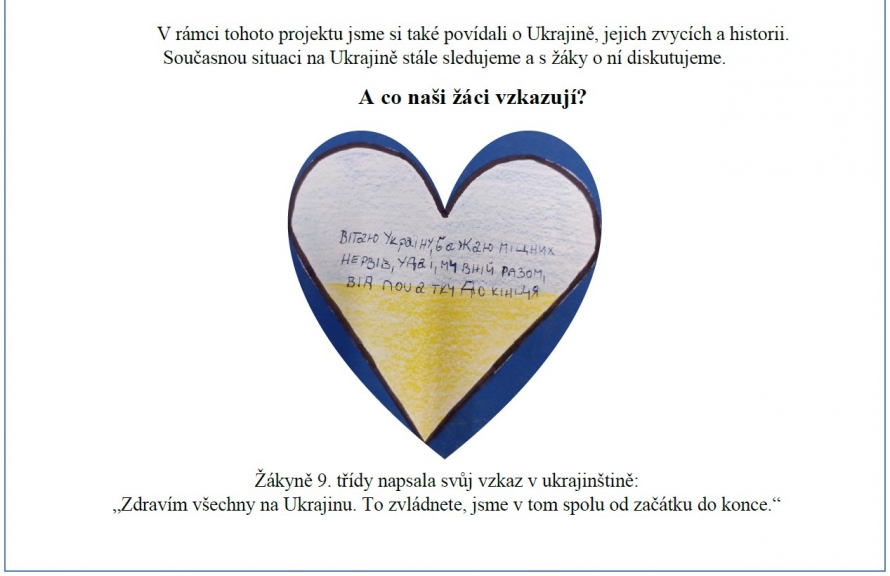 V rámci tohoto projektu jsme si také povídali o Ukrajině, jejich zvycích a historii.
Současnou situaci na Ukrajině stále sledujeme a s žáky o ní diskutujeme.
A co naši žáci vzkazují?
Вітаю Україну, бажаю міцних
нервів, удаі, му вній разом,
від початку до кінця
Žákyně 9. třídy napsala svůj vzkaz v ukrajinštině:
„Zdravím všechny na Ukrajinu. To zvládnete, jsme v tom spolu od začátku do konce.“